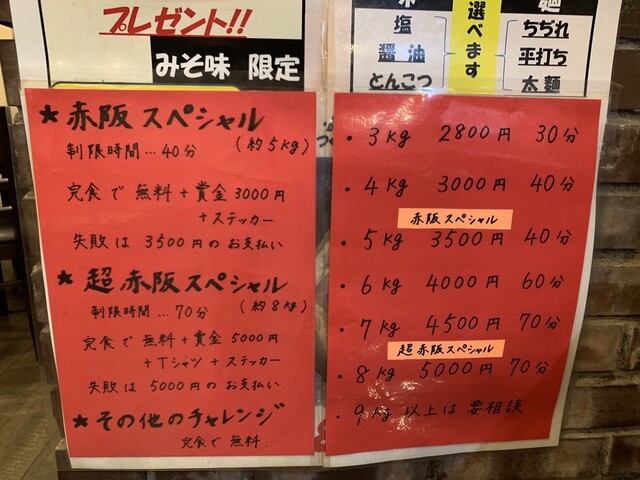 プレゼント!!
みそ味 限定
塩
醤油
とんこつ
選べます
麺
ちぢれ
平打ち
太麺
★赤阪スペシャル
制限時間…40分 (約5kg)
完食で無料+賞金3000円
+ステッカー
失敗は3500円のお支払い
★超赤阪スペシャル
制限時間…70分 (約8kg)
完食で無料+賞金5000円
+Tシャツ+ステッカー
失敗は5000円のお支払い
★その他のチャレンジ
完食で無料.
・3kg 2800円 30分
・4kg 3000円 40分
赤阪スペシャル
・5kg 3500円 40分
・6kg 4000円 60分
・7kg 4500円 70分
超赤阪スペシャル
・8kg 5000円 70分
・9kg以上は要相談